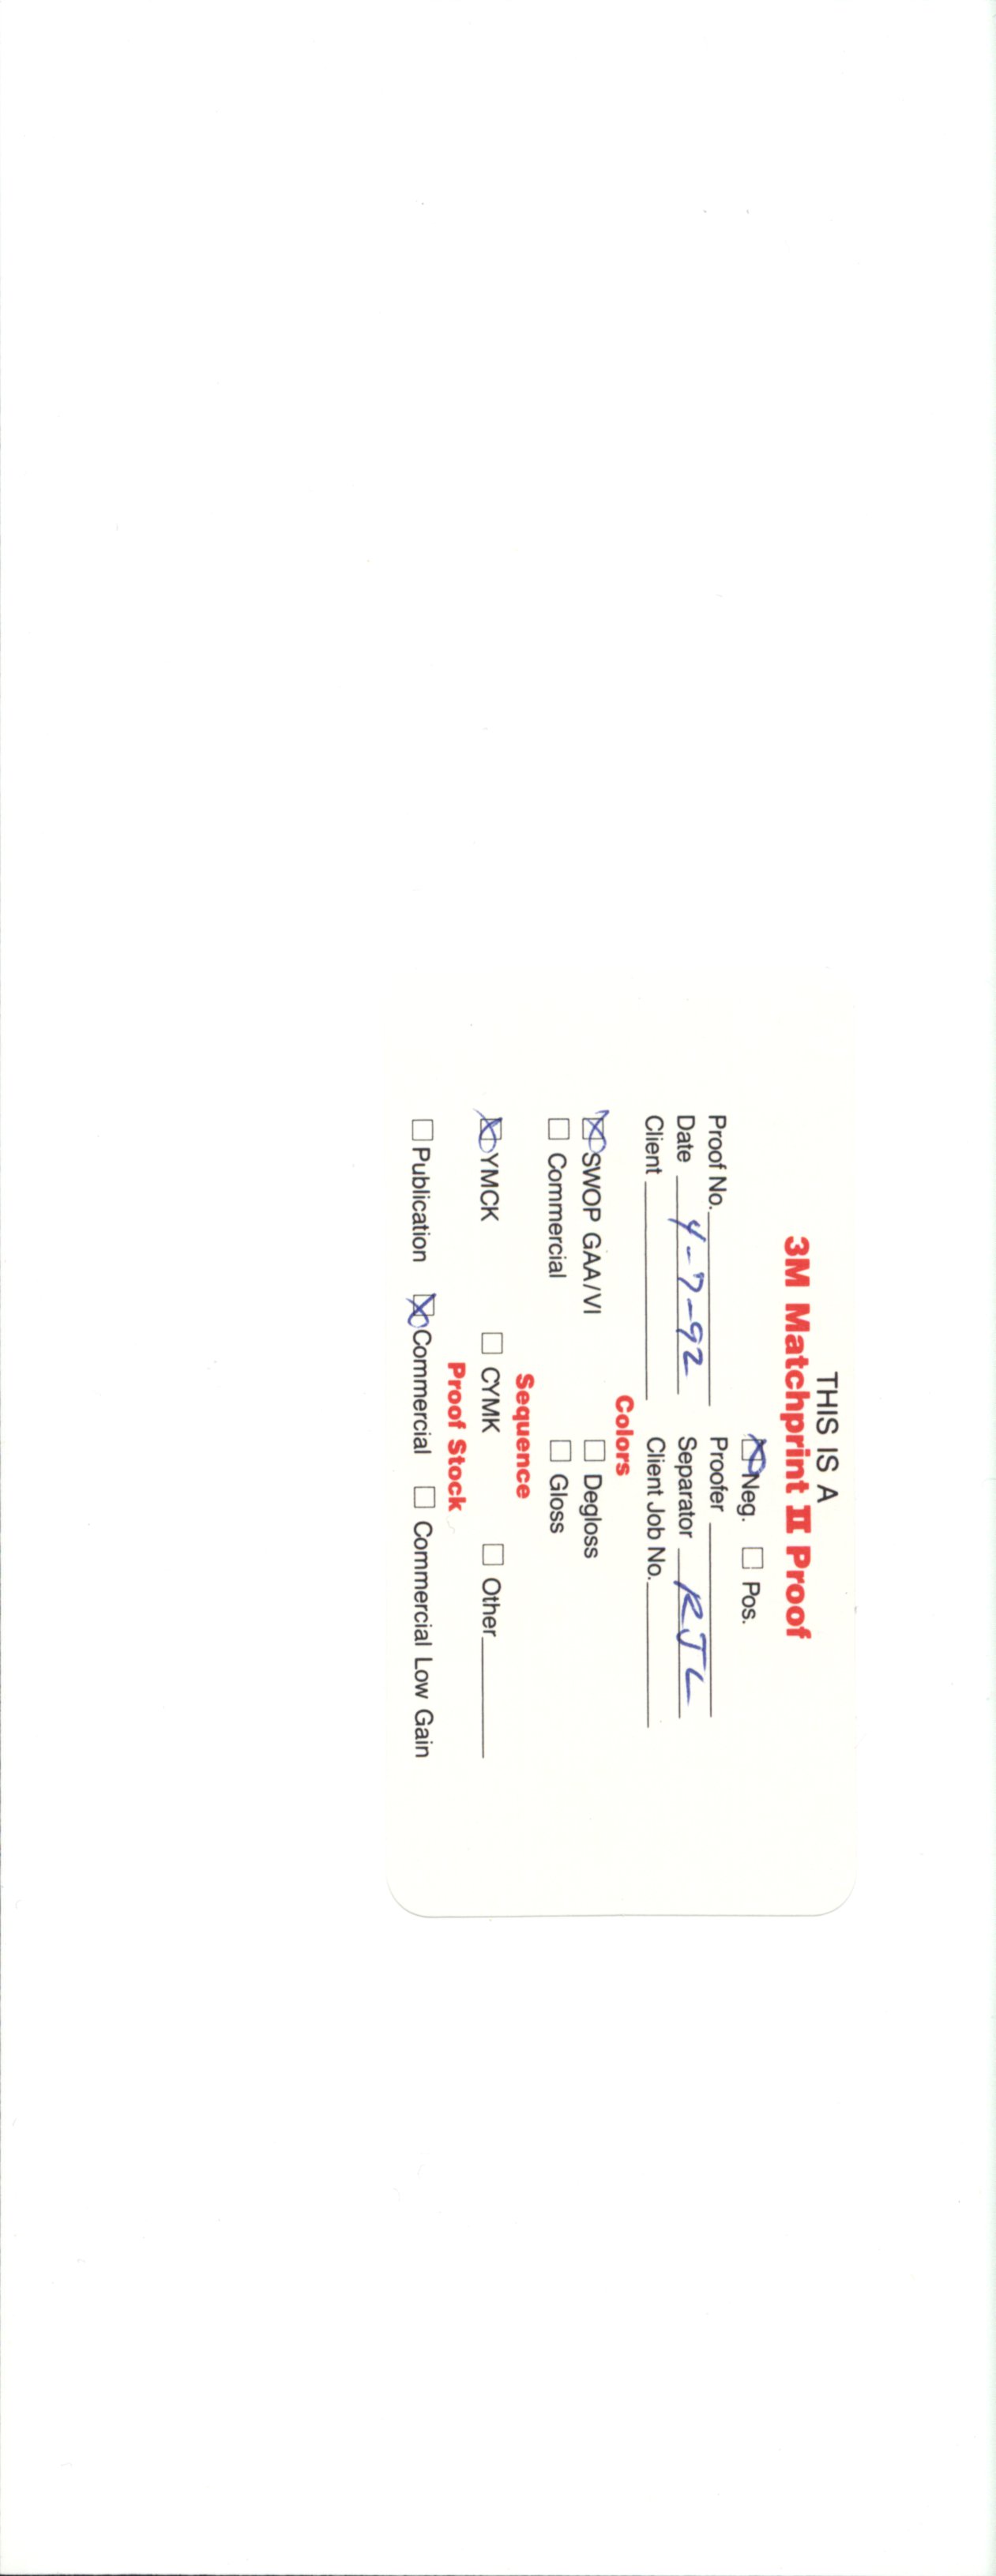 THIS IS A
3M Matchprint II Proof
☒ Neg. ☐ Pos.
Proof No.____ Proofer ____
Date 4-7-92 Separator RJL
Client ____ Client Job No.____
Colors
☒ SWOP GAA/VI ☐ Degloss
☐ Commercial ☐ Gloss
Sequence
☒ YMCK ☐ CYMK ☐ Other____
Proof Stock
☐ Publication ☒ Commercial ☐ Commercial Low Gain